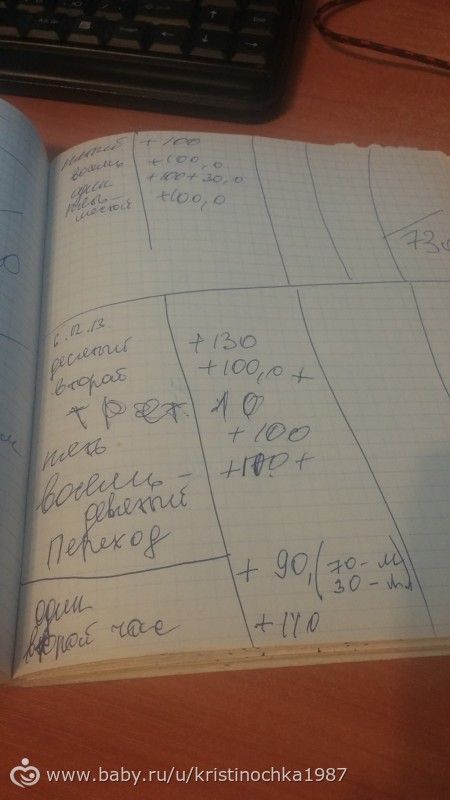 + 100
восемь +100,0
один +100+30,0
+100,0
730
6.12.13
десятый +130
второй +100,0 +
трет. 10
пять +100
восемь -
девятый +100 +
Переход
+ 90, (70 - м
30 - м
один
второй час +110
www.baby.ru/u/kristinochka1987